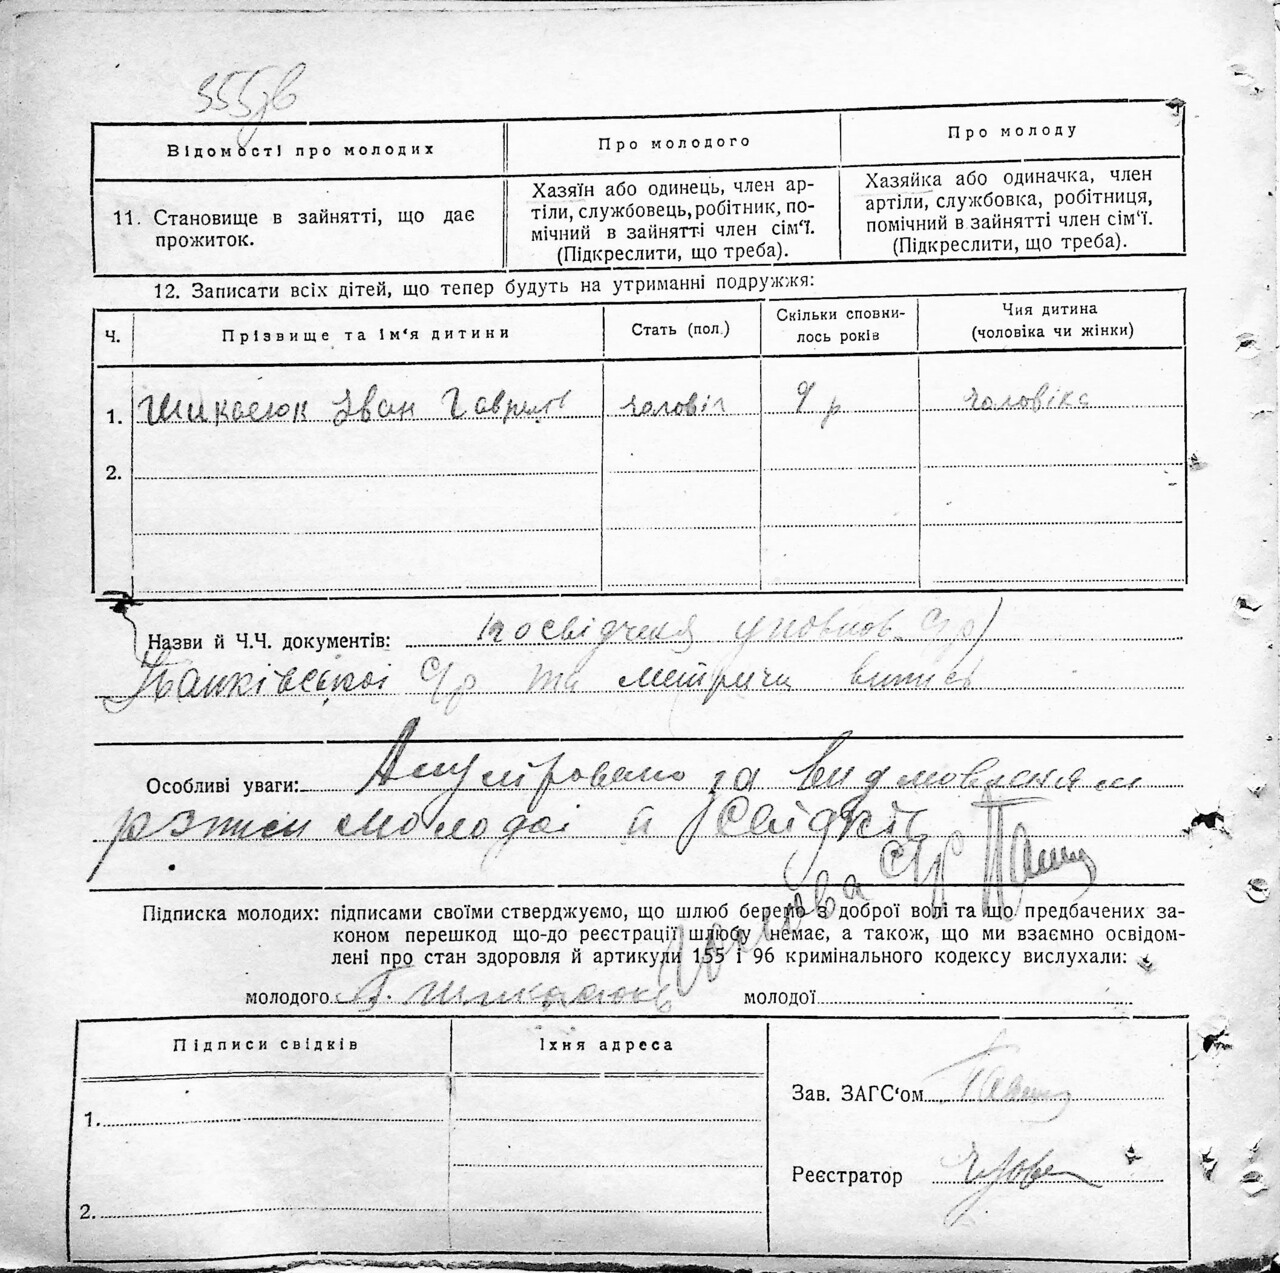 355зв
Відомості про молодих
Про молодого
Про молоду
11. Становище в зайнятті, що дає
прожиток.
Хазяїн або одинець, член ар-
тіли, службовець, робітник, по-
мічний в зайнятті член сім'ї.
(Підкреслити, що треба).
Хазяйка або одиначка, член
артіли, службовка, робітниця,
помічний в зайнятті член сім'ї.
(Підкреслити, що треба).
12. Записати всіх дітей, що тепер будуть на утриманні подружжя:
Ч.
Прізвище та ім'я дитини
Стать (пол.)
Скільки сповни-
лось років
Чия дитина
(чоловіка чи жінки)
1. Шикасюк Іван Гаврилів чоловіч 9 р чоловіка
2.
Назви й Ч.Ч. документів: посвідчення уповнов. С/р
Панківської С/р та метричн випись
Особливі уваги: Анулировано за видмовленням
розписи молодої и свідків
Голова С/р
Підписка молодих: підписами своїми стверджуємо, що шлюб беремо з доброї волі та що предбачених за-
коном перешкод що-до реєстрації шлюбу немає, а також, що ми взаємно освідом-
лені про стан здоровля й артикули 155 і 96 кримінального кодексу вислухали:
молодого Г. Шикасюк молодої
Підписи свідків
Їхня адреса
1.
2.
Зав. ЗАГС'ом
Реєстратор